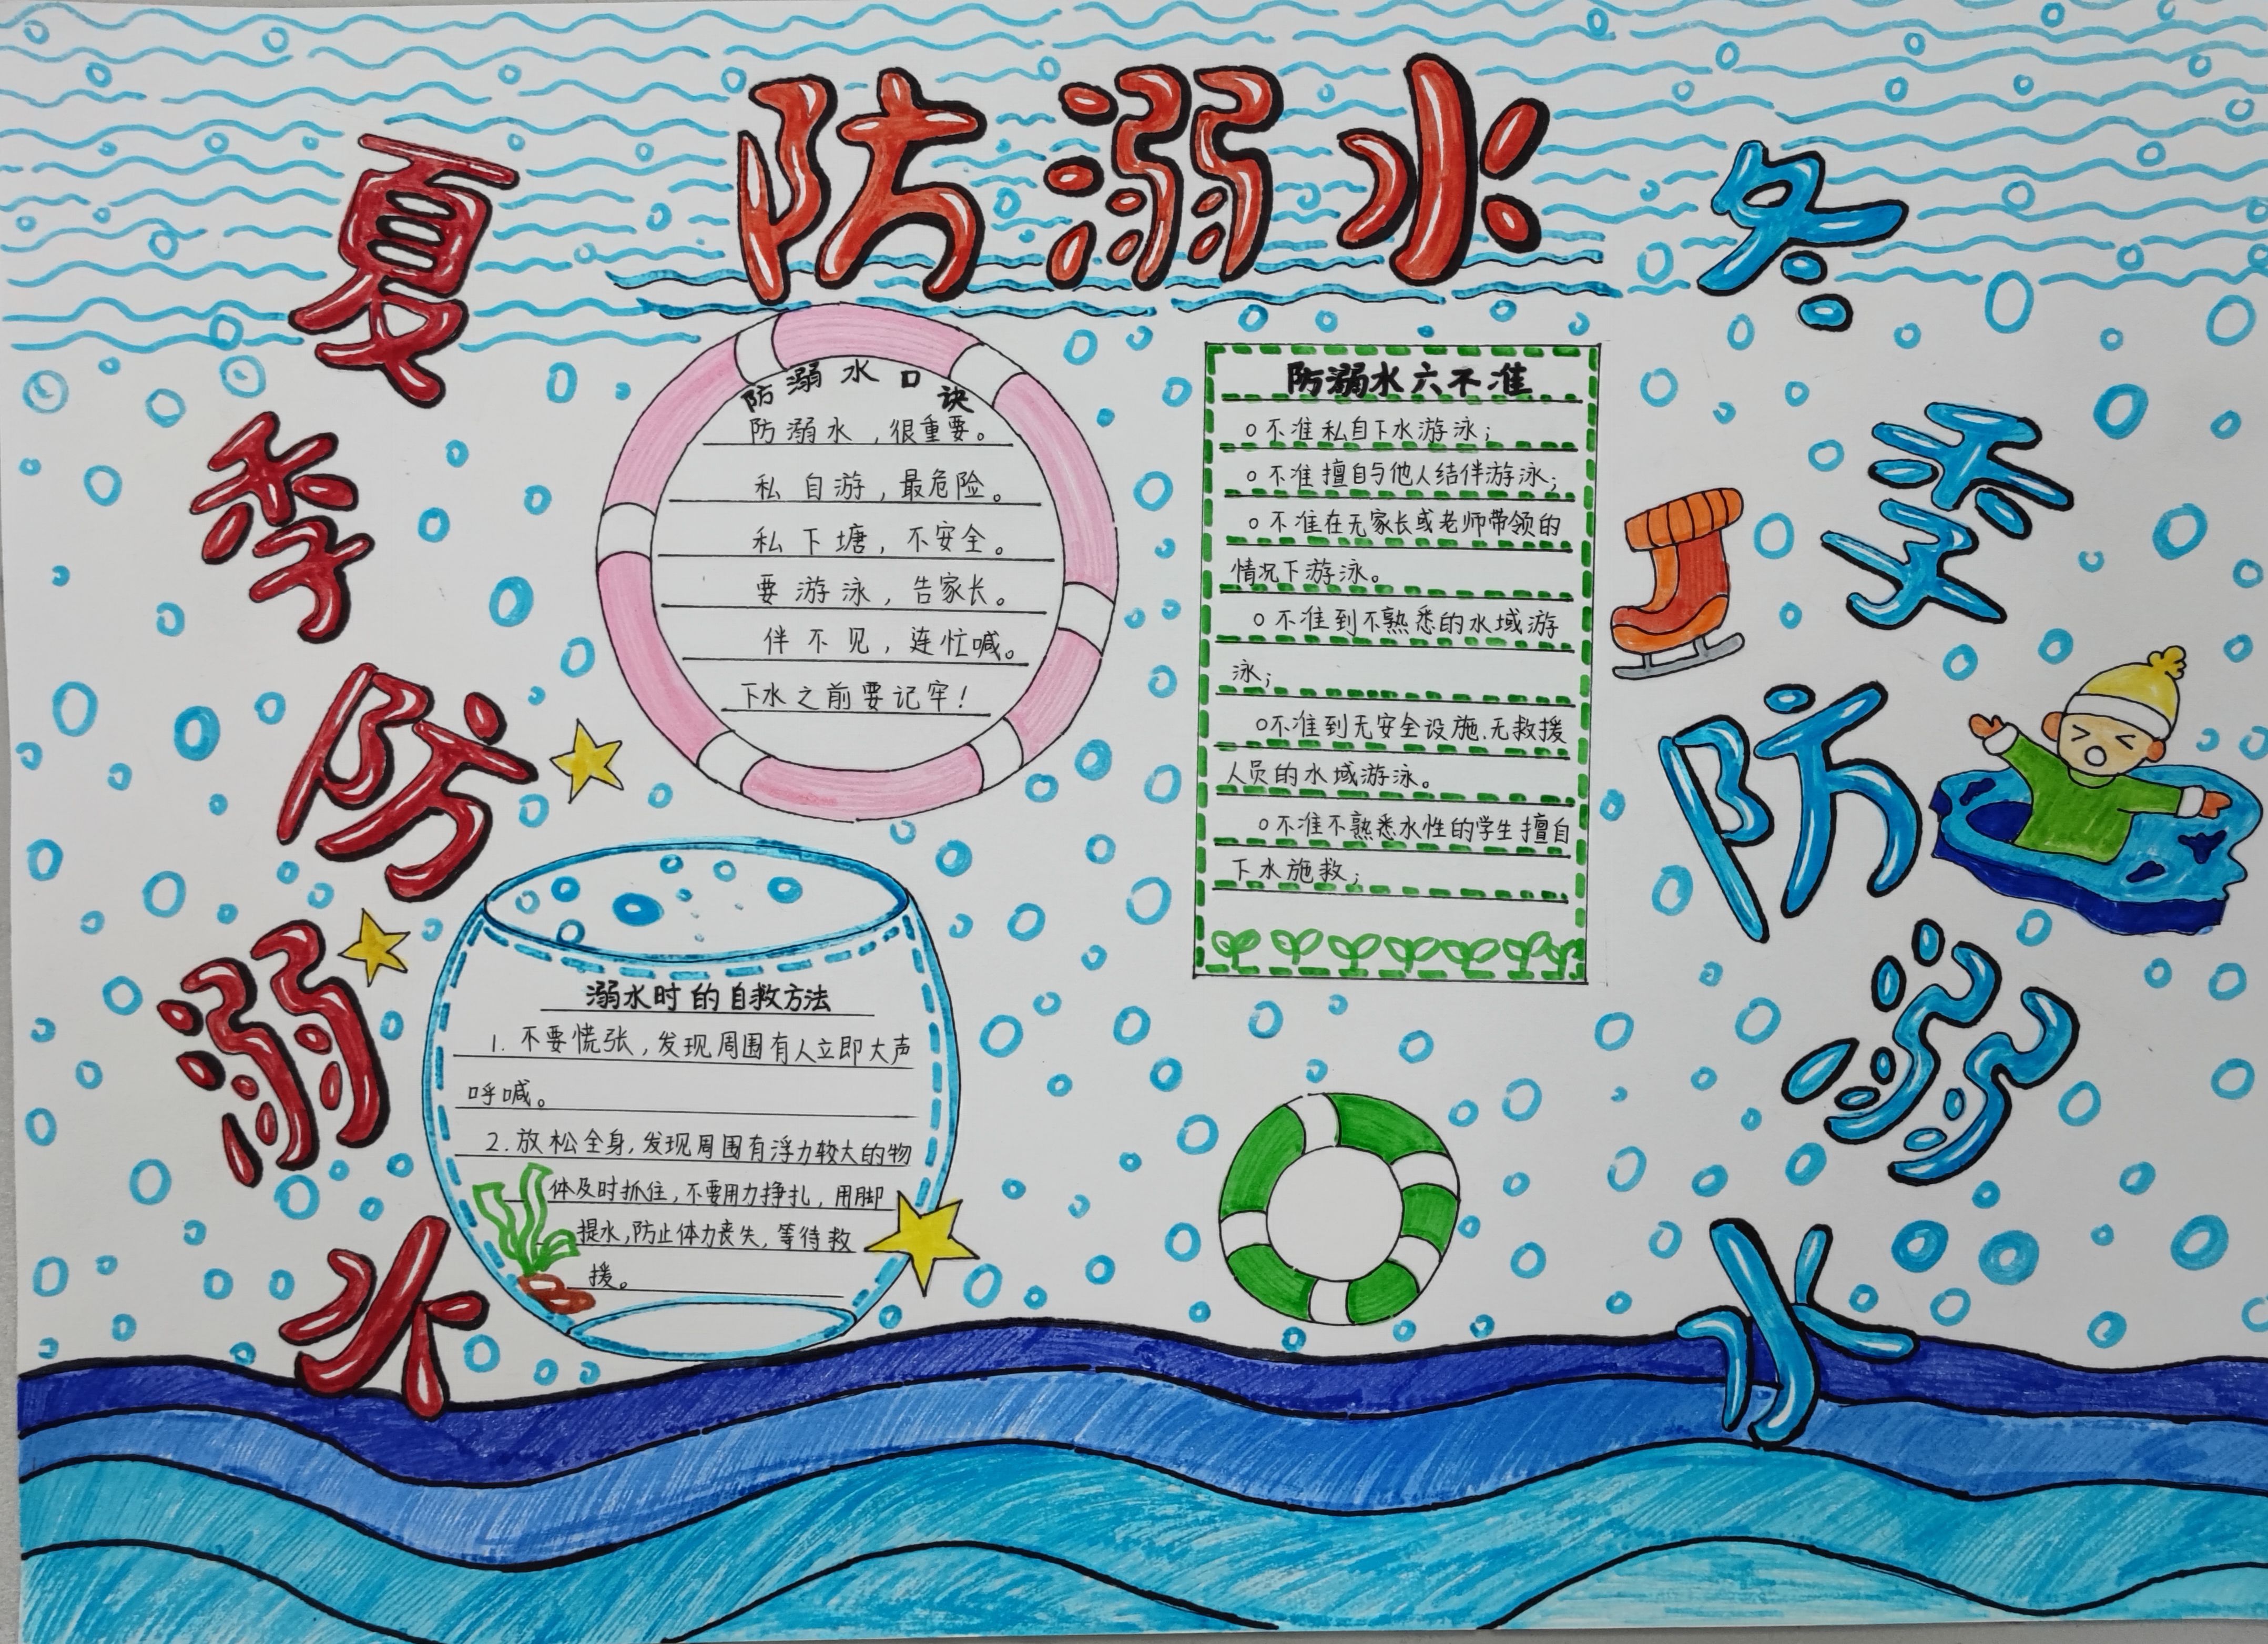 防溺水
夏季防溺水
冬季防溺水
防溺水口诀
防溺水，很重要。
私自游，最危险。
私下塘，不安全。
要游泳，告家长。
伴不见，连忙喊。
下水之前要记牢！
防溺水六不准
○不准私自下水游泳；
○不准擅自与他人结伴游泳；
○不准在无家长或老师带领的
情况下游泳。
○不准到不熟悉的水域游
泳；
○不准到无安全设施、无救援
人员的水域游泳。
○不准不熟悉水性的学生擅自
下水施救；
溺水时的自救方法
1. 不要慌张，发现周围有人立即大声
呼喊。
2. 放松全身，发现周围有浮力较大的物
体及时抓住，不要用力挣扎，用脚
提水，防止体力丧失，等待救
援。